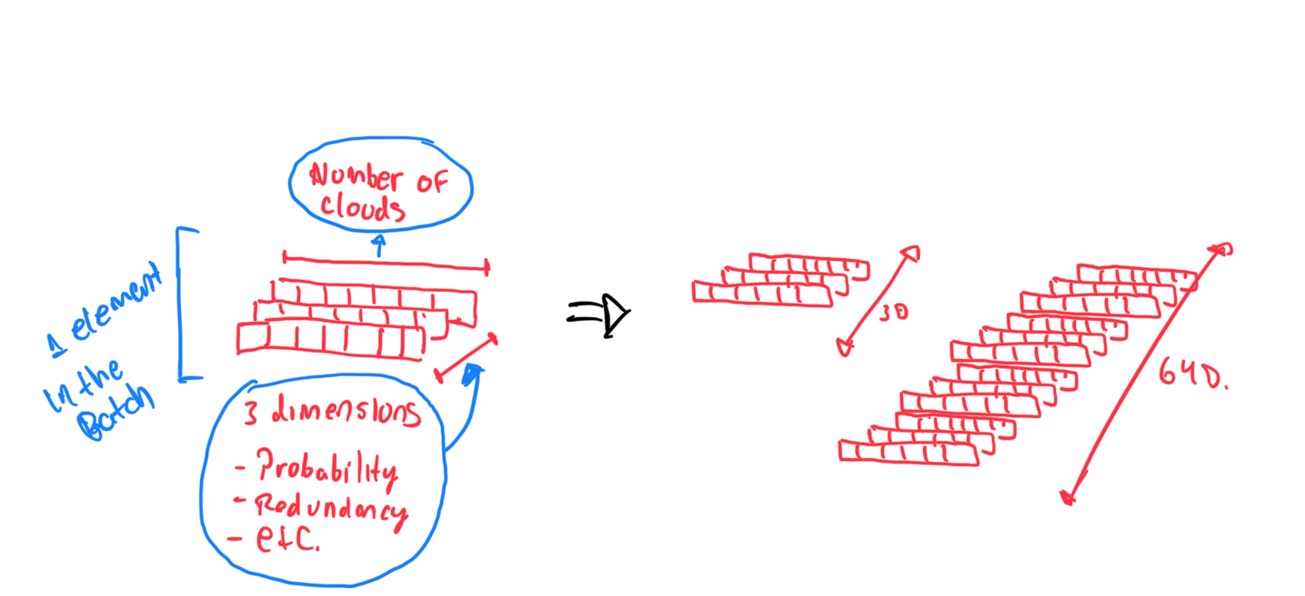 Number of
clouds
1 element
in the
Batch
3 dimensions
- Probability
- Redundancy
- etc.
3D
64D.